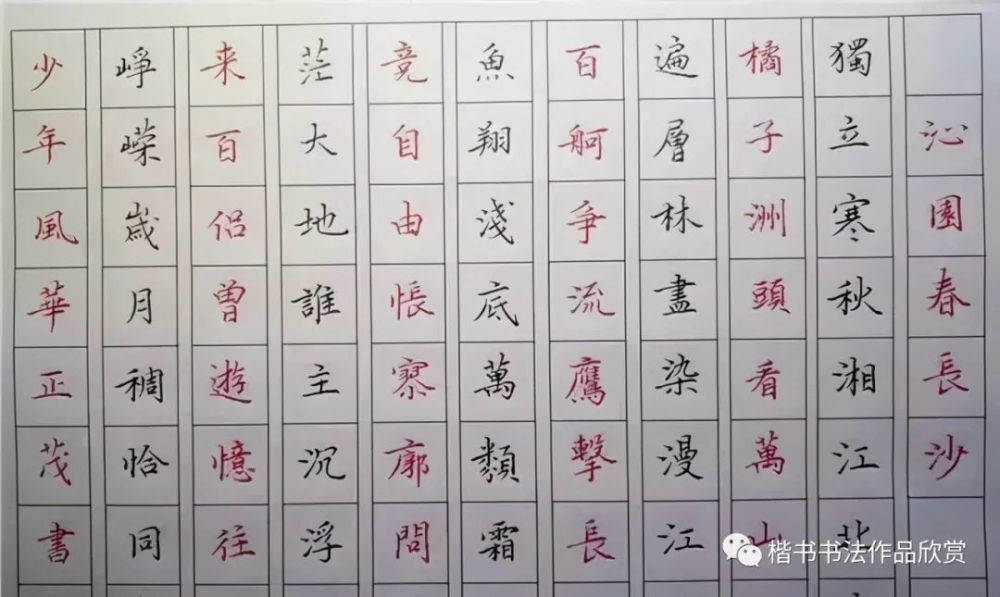 沁園春長沙
獨立寒秋湘江北
橘子洲頭看萬山
遍層林盡染漫江
百舸爭流鷹擊長
魚翔淺底萬類霜
竟自由悵寥廓問
茫大地誰主沉浮
来百侣曾遊憶往
崢嶸歲月稠恰同
少年風華正茂書
楷书书法作品欣赏